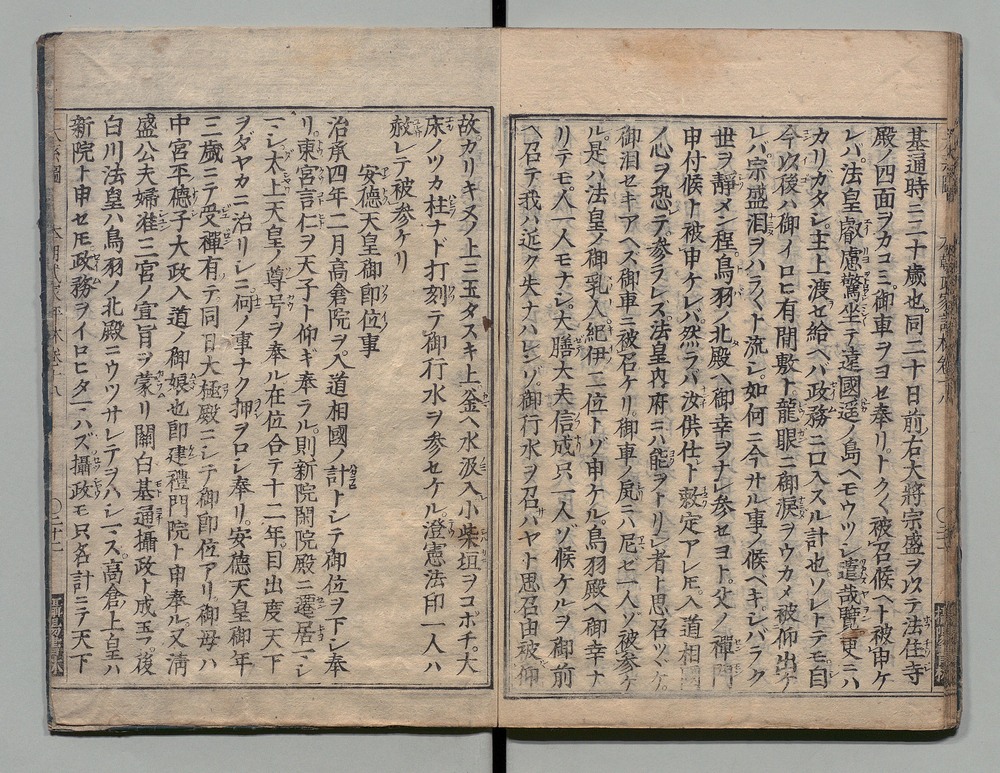 基通時ニ二十歳也。同二十日前右大將宗盛ヲ以テ法住寺
殿ノ四面ヲカコミ御車ヲヨセ奉リ。トク〳〵被召候ヘト被申ケ
レバ。法皇叡慮驚坐テ遠國遥ノ島ヘモウツシ遣哉覽。更ニハ
カリガタシ。主上渡セ給ヘバ政務ニ口入スル計也。ソレトテモ自
今以後ハ御イロヒ有間敷ト龍眼ニ御涙ヲウカメ被仰出ケ
レバ宗盛泪ヲハラ〳〵ト流シ。如何ニ今サル事ノ候ベキ。シバラク
世ヲ靜メン程鳥羽ノ北殿ヘ御幸ヲナシ参セヨト。父ノ禪門
申付候ト被申ケレバ。然ラバ汝供仕ト敕定アレ𪜈。入道相國
ノ心ヲ恐テ参ラレズ法皇内府ニハ能ヲトリシ者ト思召ツヾケ。
御泪セキアヘズ御車ニ被召ケリ。御車ノ尻ニハ尼ゼ一人ゾ被参ケ
ル。是ハ法皇ノ御乳人紀伊二位トゾ申ケル。鳥羽殿ヘ御幸ナ
リテモ人一人モナシ。大膳大夫信成只一人ゾ候ケルヲ御前
ヘ召テ我ハ近ク失ナハレンゾ。御行水ヲ召バヤト思召由被仰
故。カリキヌノ上ニ玉ダスキ上釜ヘ水汲入小柴垣ヲコボチ。大
床ノツカ柱ナド打刻テ御行水ヲ参セケル。澄憲法印一人ハ
赦レテ被参ケリ
安德天皇御即位事
治承四年二月高倉院ヲバ入道相國ノ計トシテ御位ヲ下シ奉
リ。東宮言仁ヲ天子ト仰ギ奉ラル。則新院閑院殿ニ遷居マシ
マシ。太上天皇ノ尊号ヲ奉ル在位合テ十二年。目出度天下
ヲダヤカニ治リシニ何ノ事ナク押ヲロシ奉リ。安德天皇御年
三歳ニテ受禪有テ。同日大極殿ニシテ御即位アリ。御母ハ
中宮平德子大政入道ノ御娘也即建禮門院ト申奉ル。又淸
盛公夫婦准三宮ノ宣旨ヲ蒙リ關白基通攝政ト成玉フ。後
白川法皇ハ鳥羽ノ北殿ニウツサレテヲハシマス。高倉上皇ハ
新院ト申セ𪜈。政務ヲイロヒタマハズ攝政モ只名計ニテ天下